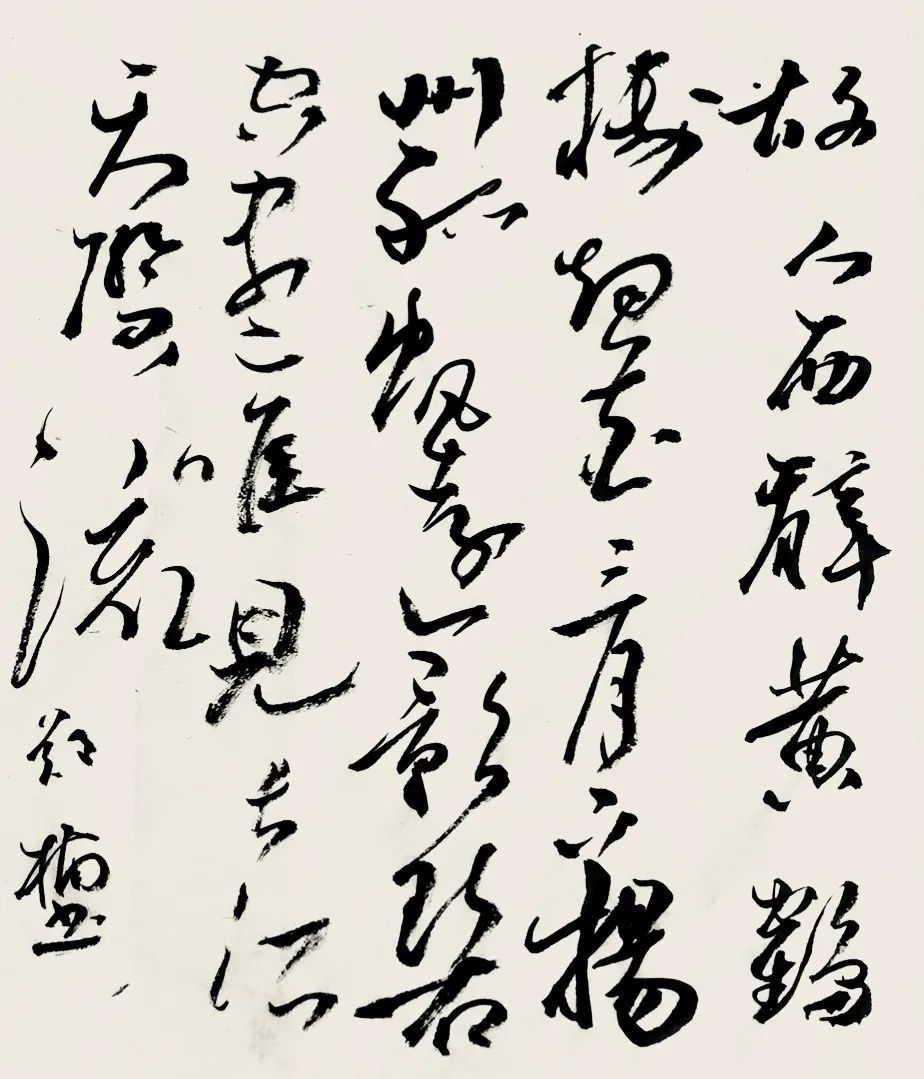 故人西辭黄鶴
樓煙花三月下揚
州孤帆遠影碧
空盡唯見長江
天際流